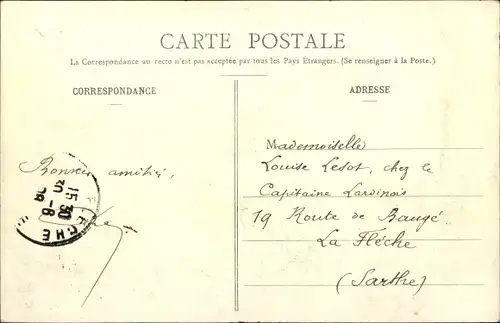 CARTE POSTALE
La Correspondance au recto n'est pas acceptée par tous les Pays Étrangers. (Se renseigner à la Poste.)
CORRESPONDANCE
ADRESSE
Bonnes amitiés,
Mademoiselle
Louise Lesot, chez le
Capitaine Lardinois
19 Route de Baugé
La Flèche
(Sarthe)
15 30
-8
FLECHE